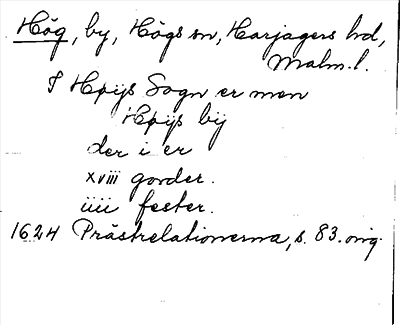 Hög, by, Högs sn, Harjagers hd,
Malm.l.
I Høÿs Sogn er men
Høÿs bÿ
der i er
xviii gorder.
iiii fester.
1624 Prästrelationerna, s. 83. orig.